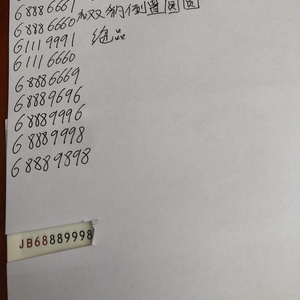 68886661
68886660 加双钩倒置圆圆
61119991 绝品
61116660
68886669
68889696
68889996
68889998
68889898
JB68889998